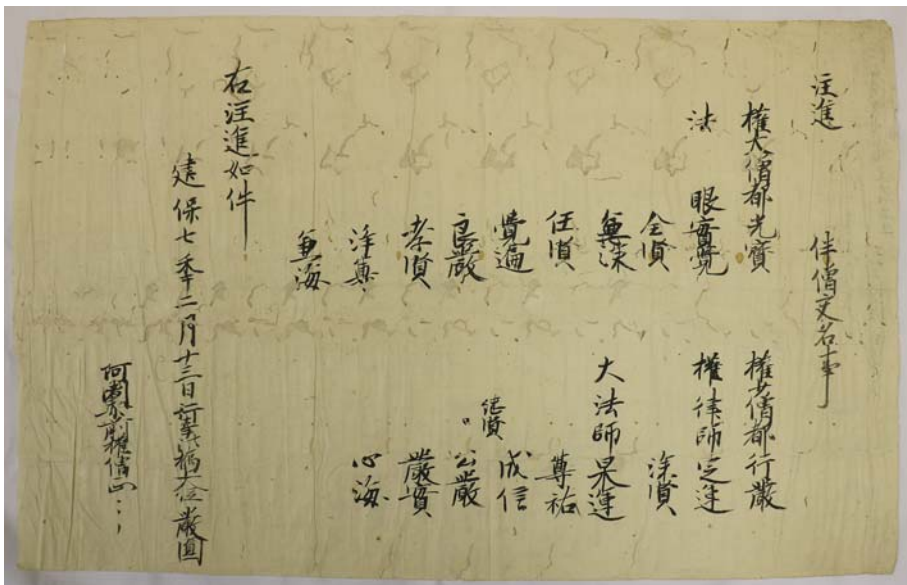 注進　伴僧交名事
權大僧都光寳　權少僧都行嚴
法眼實覚　權律師定運
全賢　深賢
兼深　大法師果運
任賢　尊祐
覺遍　成信
良嚴　公嚴
孝賢　嚴實
淨真　心海
兼海
右注進如件
建保七年二月十三日行事大法師嚴圓
阿闍梨前權僧正